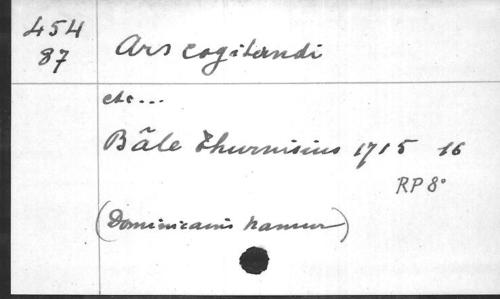 454
87
Ars cogitandi
etc...
Bâle Thurnisius 1715 16
RP 8°
(Dominicains Namur)